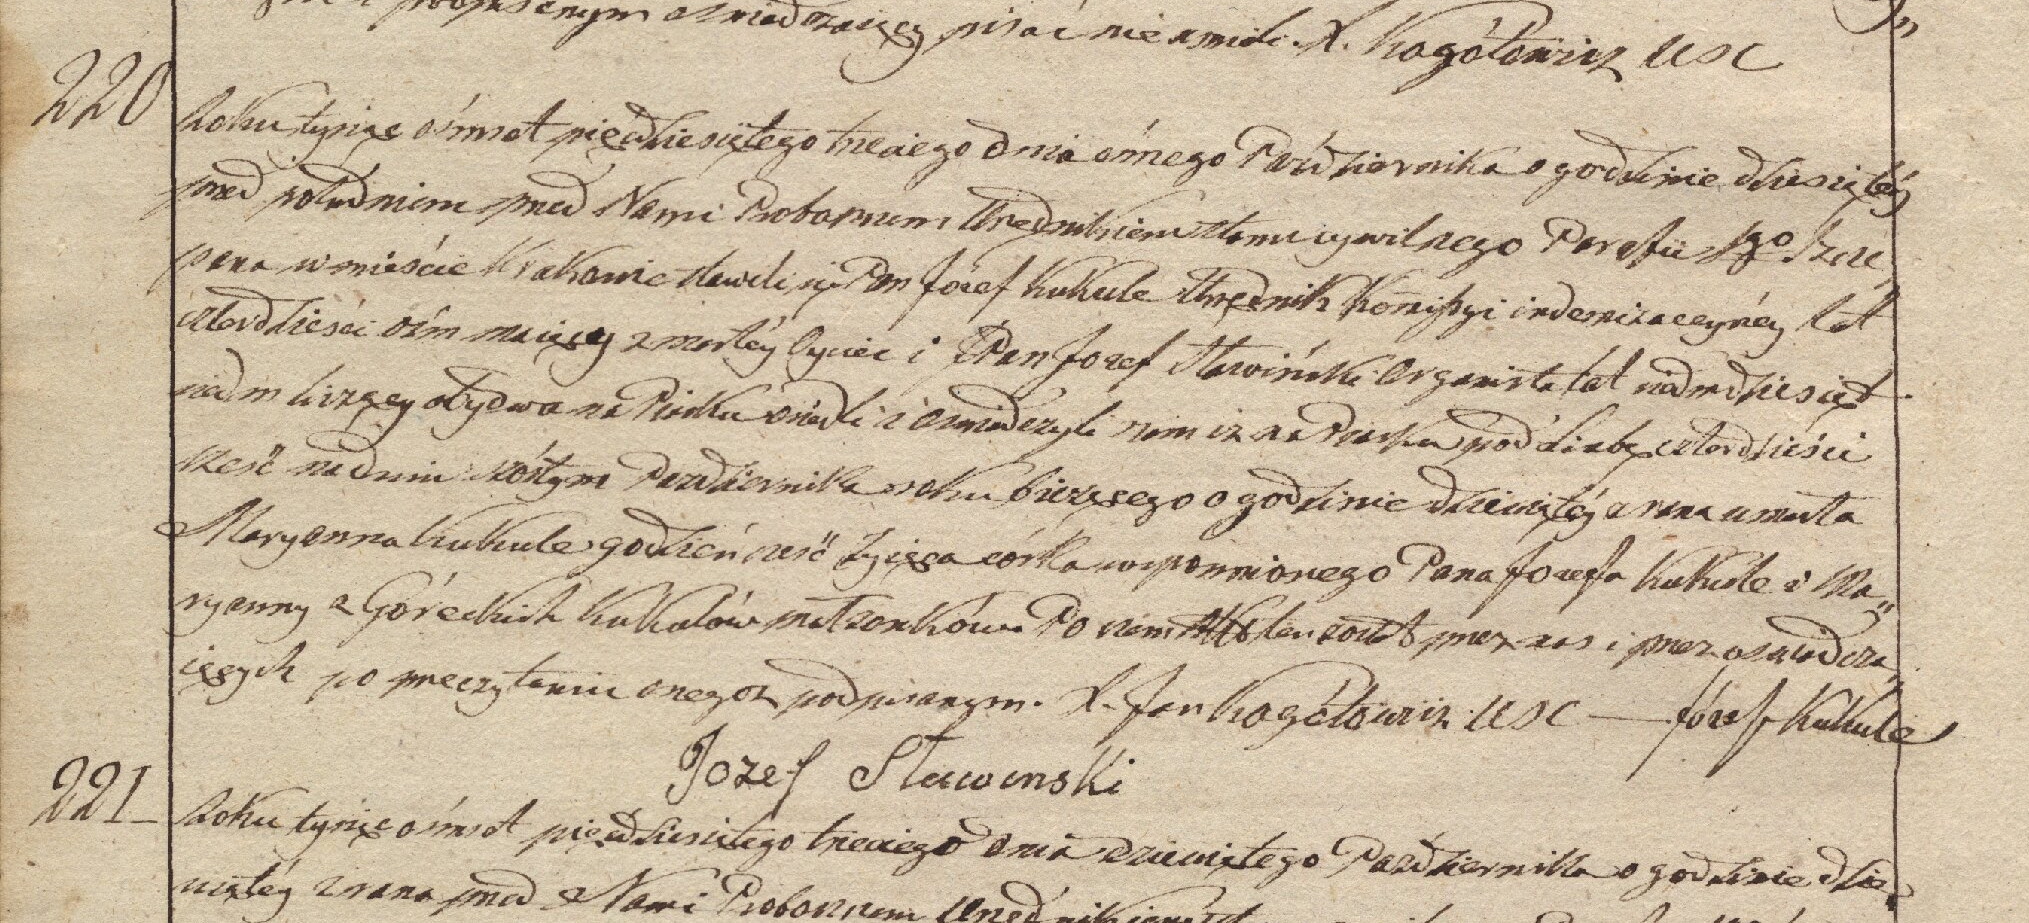 podpisanym oświadczający pisać nie umieli. X. Rogółowicz USC
220
Roku tysiąc ośmset pięćdziesiątego trzeciego dnia ósmego Października o godzinie dziesiątéj
przed południem przed Nami Proboszczem Urzędnikiem stanu cywilnego Parafii Sgo Szcze
pana w mieście Krakowie stawili się Pan Józef Kukule Urzędnik Komissyi indemizacyjnéj lat
czterdzieści ośm mający zmarłéj Oyciec i Pan Jozef Sławiński Organista lat siedmdziesiąt
siedm liczący obydwa na Piasku osiedli i oświadczyli nam iż na Piasku pod liczbą czterdzieści
sześć na dniu szóstym Października roku bieżącego o godzinie dziewiątéj z rana umarła
Maryanna Kukule godzień sześć żyjąca córka wspomnionego Pana Jozefa Kukule i Ma„
ryanny z Góreckich Kukulów małżonków Po czem Akt ten został przez nas i przez oświadcza„
jących po przeczytaniu onegoż podpisanym. X. Jan Rogółowicz USC — Józef Kukule
Jozef Sławinski
221
Roku tysiąc ośmset pięćdziesiątego trzeciego dnia dziewiątego Października o godzinie dzie„
wiątéj z rana przed Nami Proboszczem Urzędnikiem